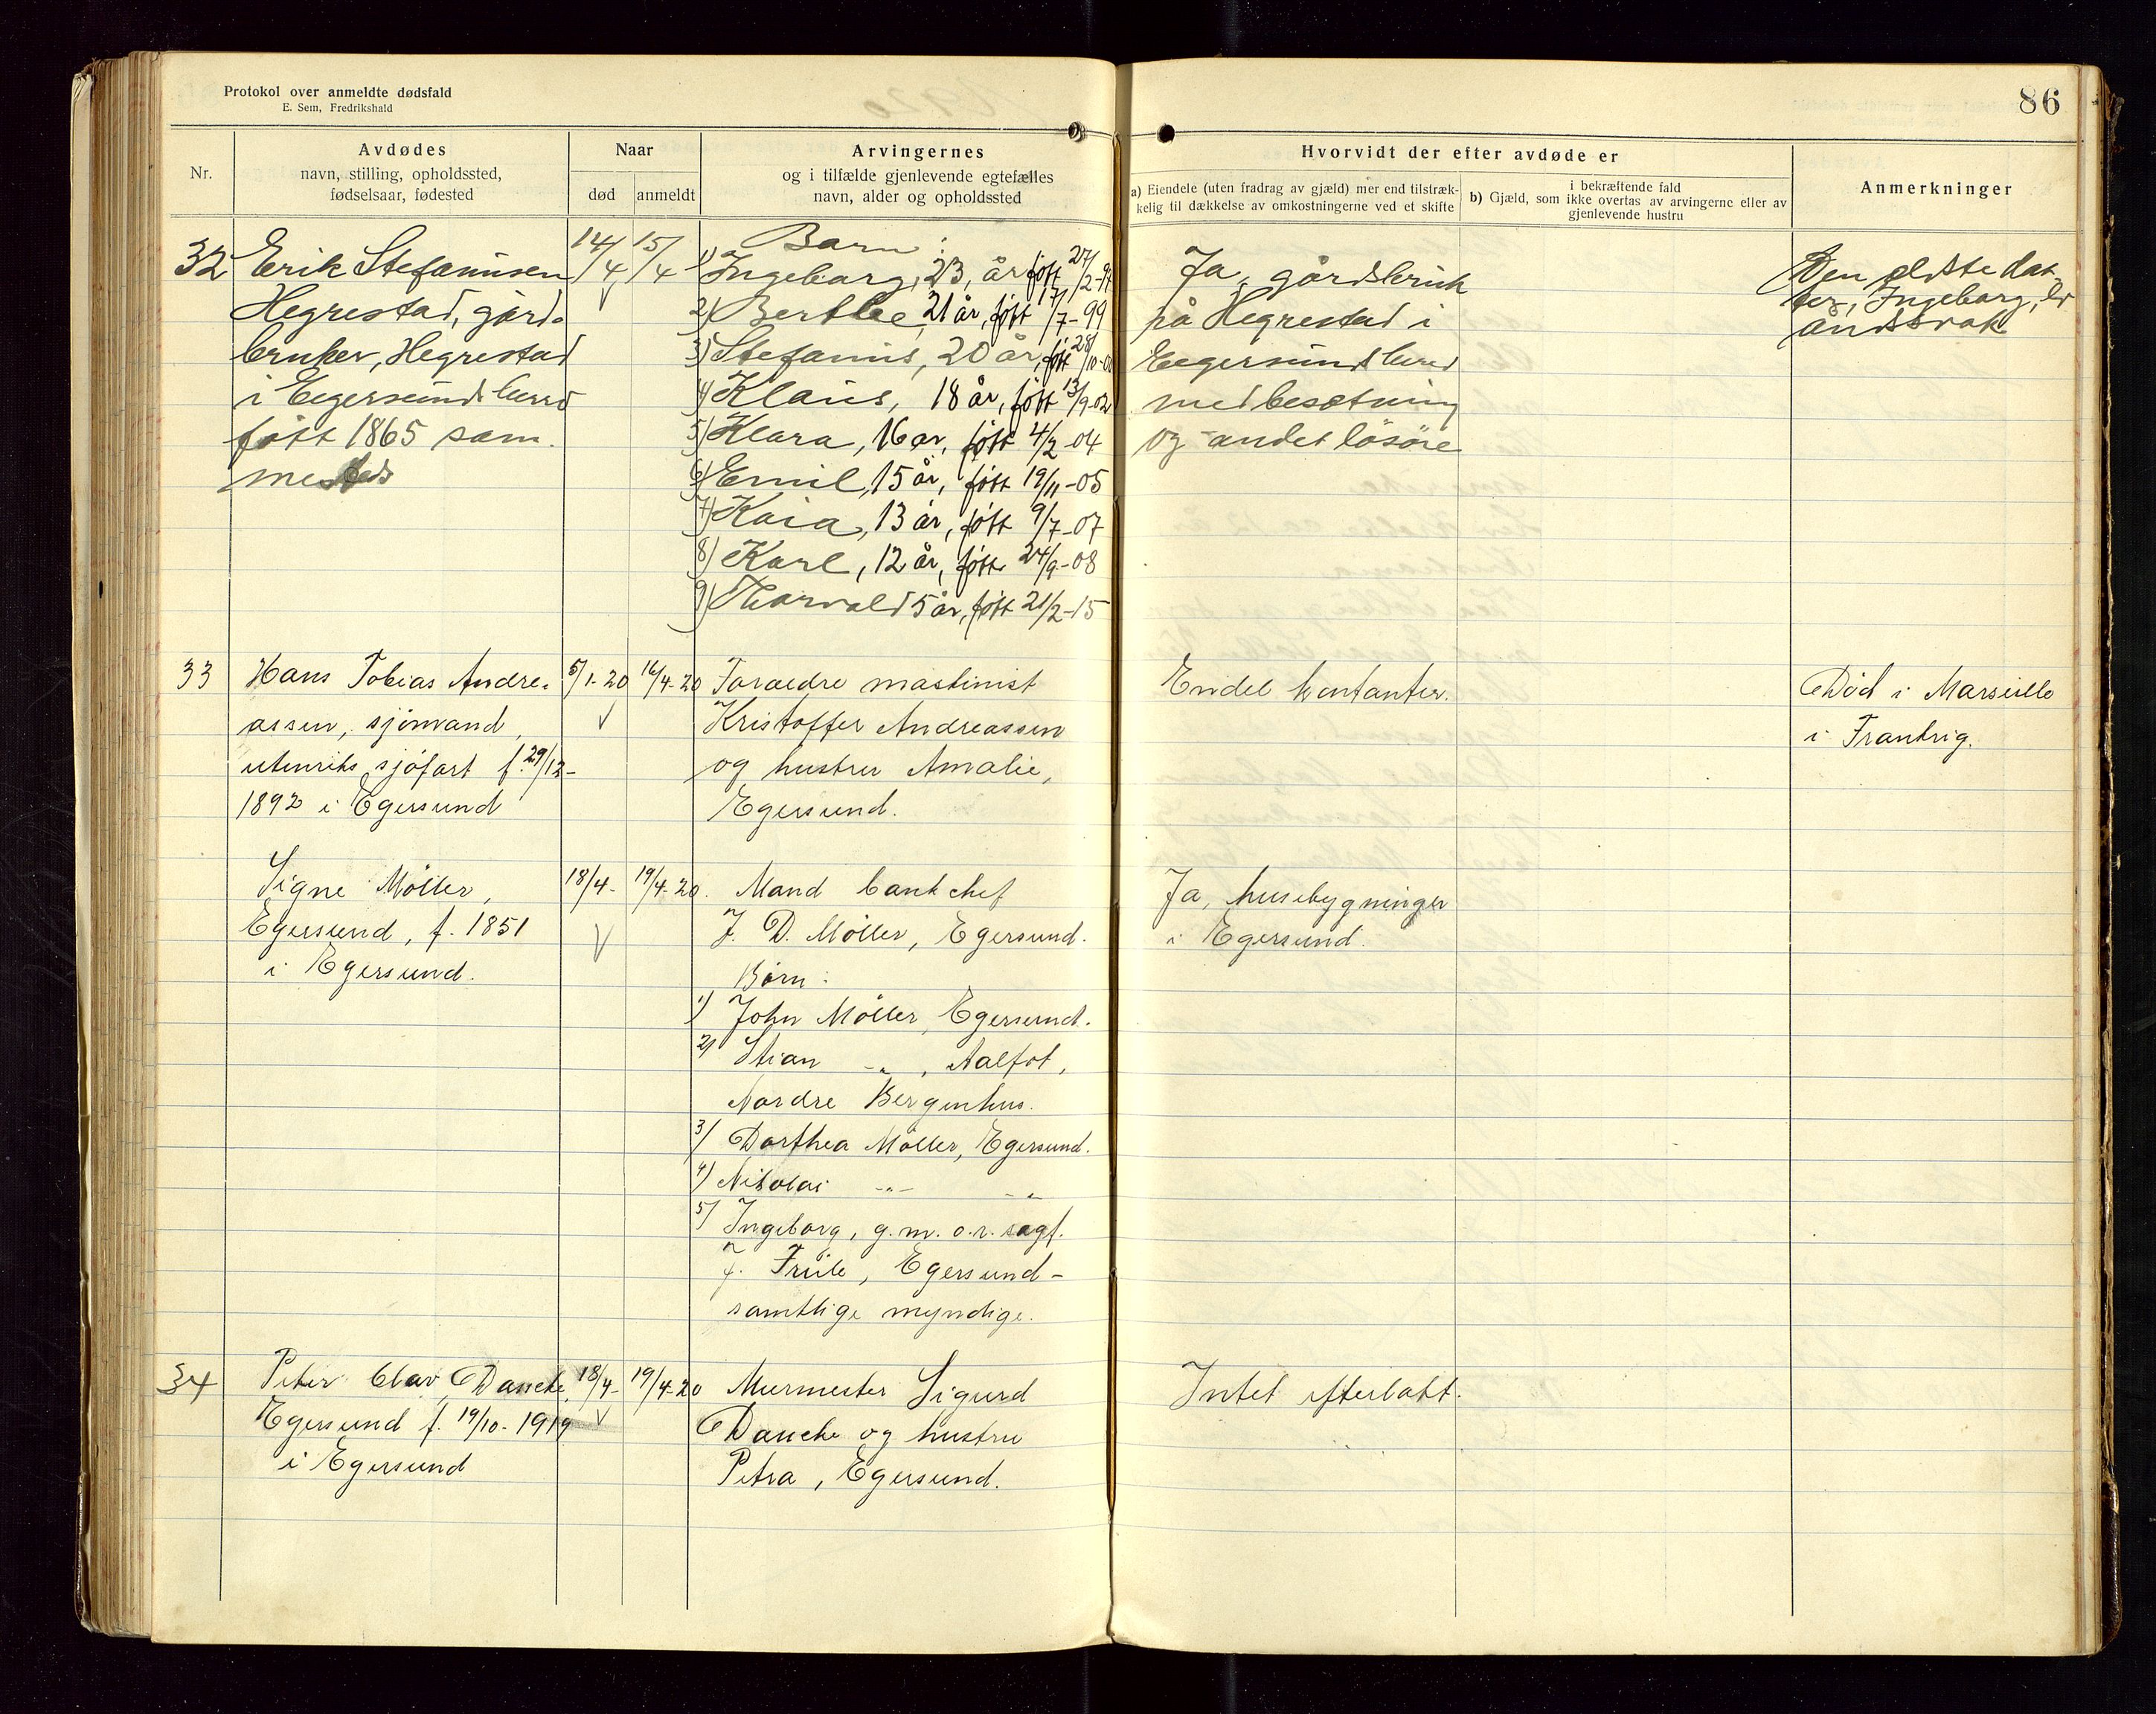 Protokol over anmeldte dødsfald
E. Sem, Fredrikshald
1920
86
Nr.
Avdødes
navn, stilling, opholdssted,
fødselsaar, fødested
Naar
død
anmeldt
Arvingernes
og i tilfælde gjenlevende egtefælles
navn, alder og opholdssted
Hvorvidt der efter avdøde er
a) Eiendele (uten fradrag av gjæld) mer end tilstræk-
kelig til dækkelse av omkostningerne ved et skifte
i bekræftende fald
b) Gjæld, som ikke overtas av arvingerne eller av
gjenlevende hustru
Anmerkninger
32
Erik Stefanusen
Hegrestad, gård-
bruker, Hegrestad
i Egersund herred
født 1865 sam.
mesteds
14/4
15/4
Barn:
1) Ingeborg, 23, år født 27/2-97
2) Berthe, 21 år, født 17/7-99
3) Stefanus, 20 år, født 28/10-00
4) Klaus, 18 år, født 13/9-02
5) Klara, 16 år, født 4/2-04
6) Emil, 15 år, født 19/11-05
7) Kaia, 13 år, født 9/7-07
8) Karl, 12 år, født 24/9-08
9) Thorvald 5 år, født 21/2-15
Ja, gårdsbruk
på Hegrestad i
Egersund herred
med besetning
og andet løsøre
Den eldste dat-
ter, Ingeborg, er
åndssvak
33
Hans Tobias Andre-
assen, sjømand,
utenriks sjøfart f. 29/12-
1892 i Egersund
5/1-20
16/4-20
Foraedre maskinist
Kristoffer Andreassen
og hustru Amalie,
Egersund.
Endel kontanter.
Død i Marseille
i Frankrig.
Signe Møller,
Egersund, f. 1851
i Egersund.
18/4-
19/4-20.
Mand bankchef
J. D. Møller, Egersund.
Børn:
1) John Møller, Egersund.
2) Stian -"-, Aalfot,
Nordre Bergenhus.
3) Dorthea Møller, Egersund.
4) Nikolai -"- -"-
5) Ingeborg, g.m. o.r. sagf.
J. Friile, Egersund -
samtlige myndige.
Ja, husebygninger
i Egersund.
34
Peter Olav Dancke,
Egersund f. 19/10-1919
i Egersund
18/4-
19/4-20
Murmester Sigurd
Dancke og hustru
Petra, Egersund.
Intet efterlatt.